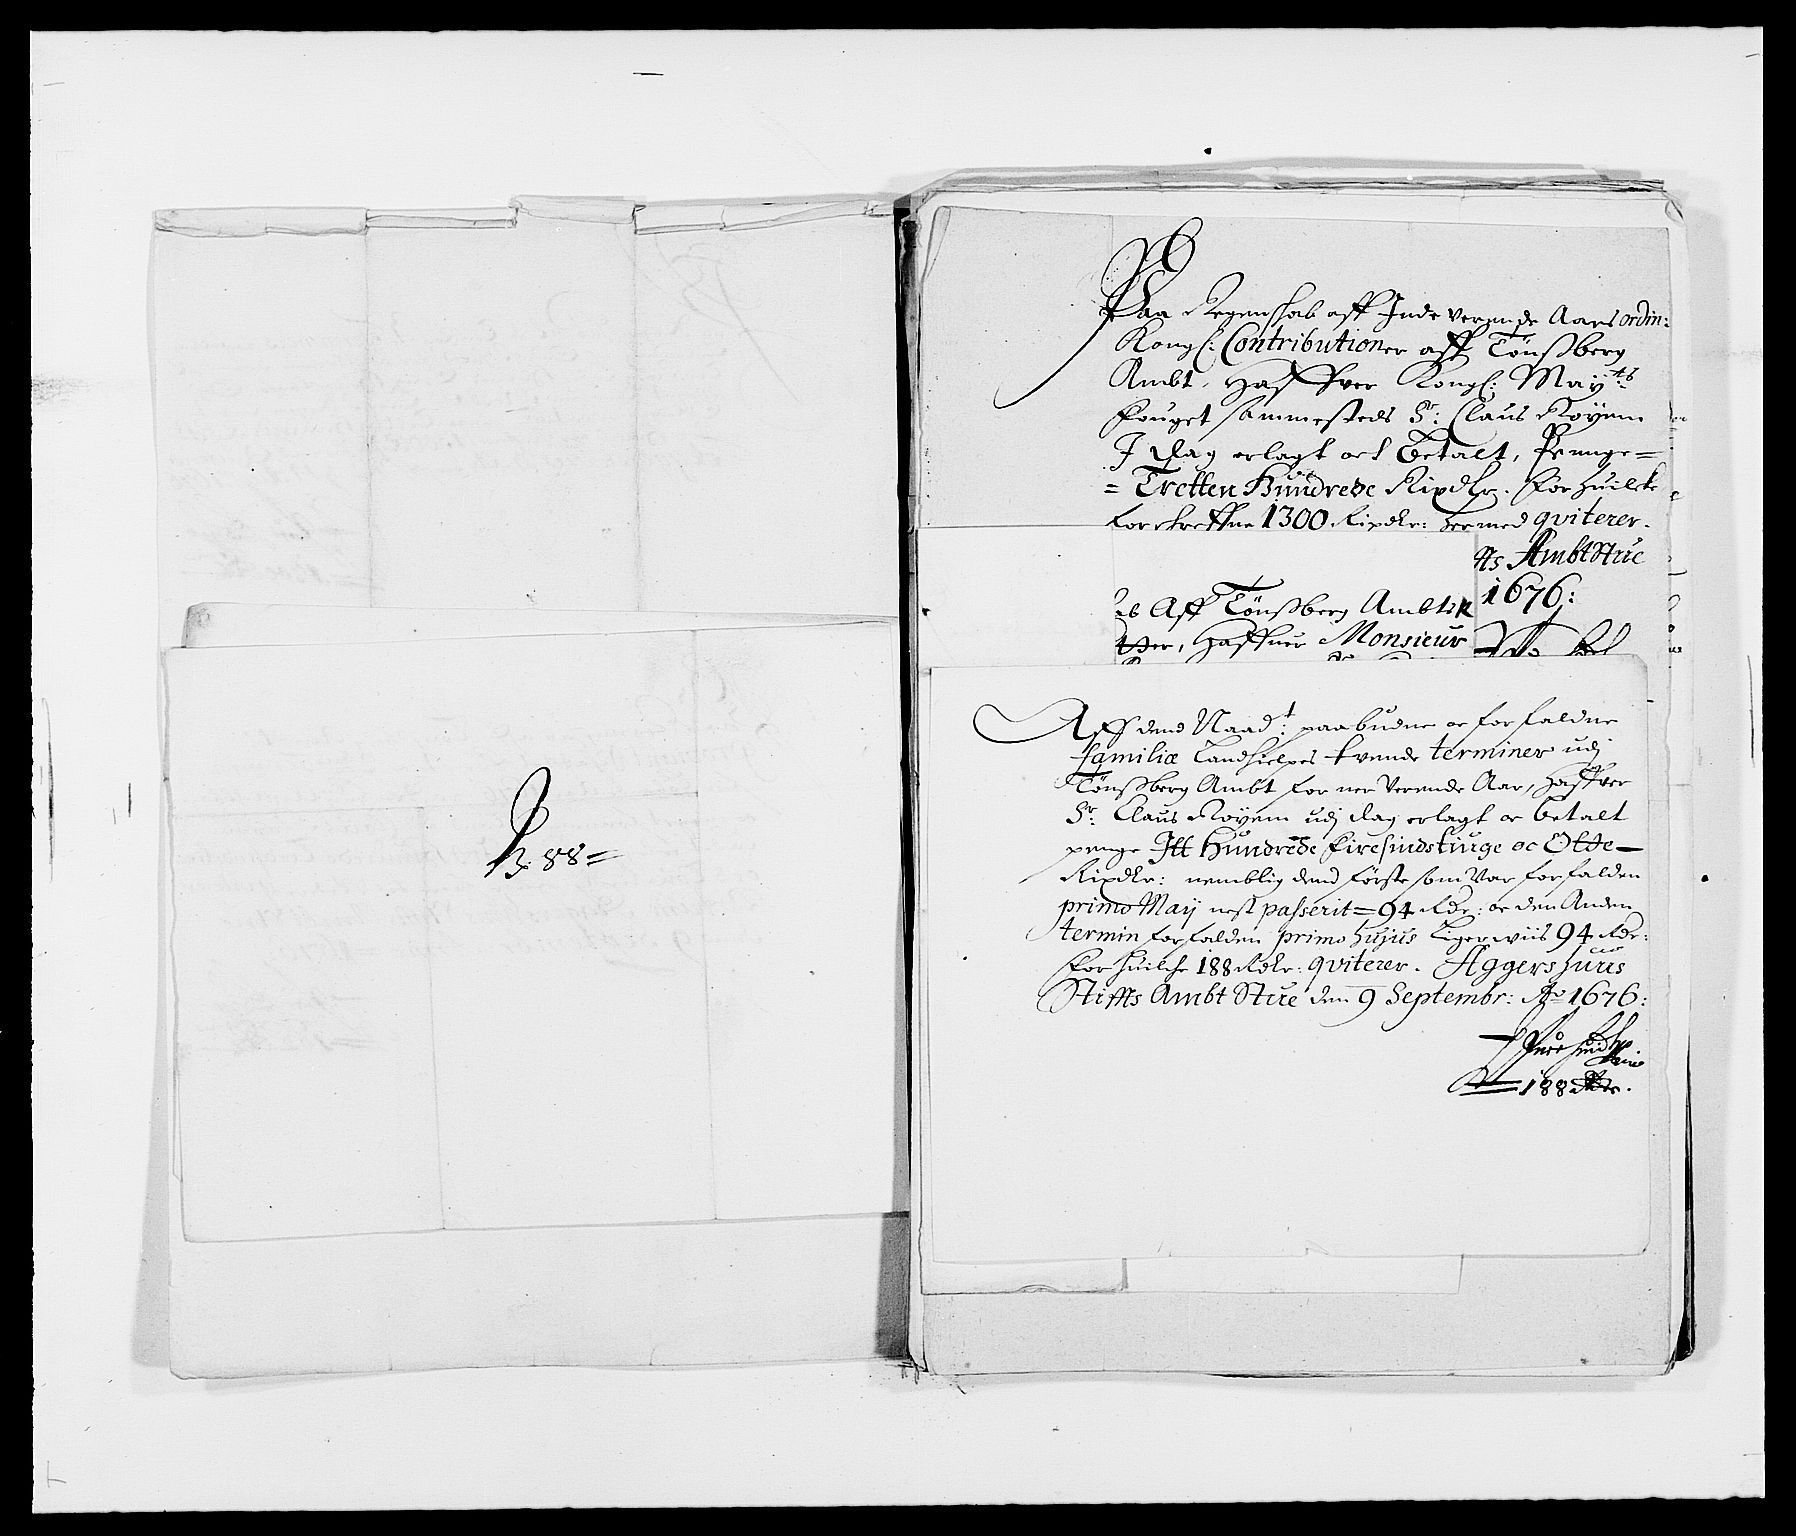 Paa Regenschab aff Inde Verende Aars ordin:
Kongl: Contributioner aff Tönsßberg
Ambt, Haffver Kongl: Mayts
Fouget sammesteds Sr: Claus Röyem
I Dag erlagt och Betalt, Penge=
=Tretten Hundrede Rixdlr. for huilcke
forskreffne 1300 Rixdlr: hermed qviterer.
Ambt Stue
1676:
Aff Tönsßberg Ambts
haffuer Monsieur
Aff dend Naadt: paabudne oc forfaldne
familiæ Landhielpes tvende terminer udj
Tönsßberg Ambt for nerverende Aar, haffver
Sr: Claus Röyem udj dag erlagt oc betalt
penge Itt Hundrede firesindstiuge oc Otte
Rixdlr: nemblig dend förste som Var forfalden
primo Maij nest passerit = 94 Rdr: oc den Anden
termin forfalden primo hujus ligerwiis 94 Rdr:
for huilche 188 Rdlr: qviterer. Aggershuus
Stiffts Ambt Stue den 9 Septembr: Ao 1676:
188 Rdr.
88=